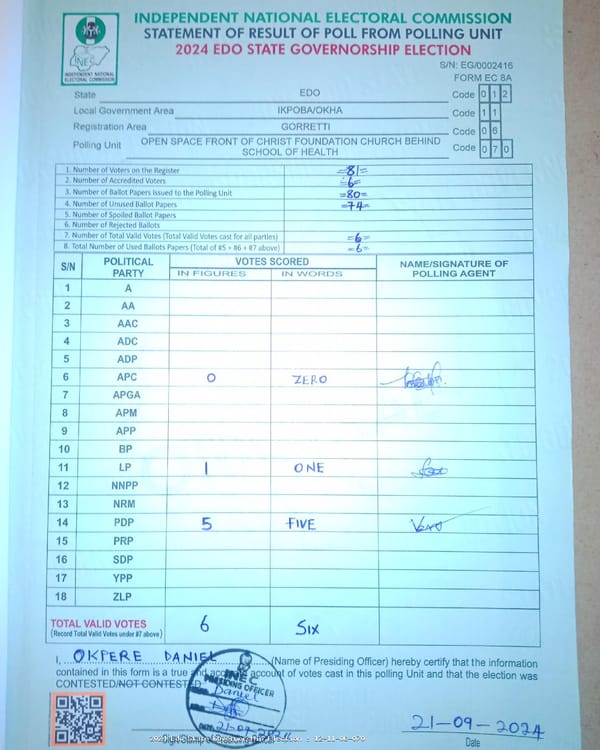 INDEPENDENT NATIONAL ELECTORAL COMMISSION
STATEMENT OF RESULT OF POLL FROM POLLING UNIT
2024 EDO STATE GOVERNORSHIP ELECTION
INEC
INDEPENDENT NATIONAL
ELECTORAL COMMISSION
S/N: EG/0002416
FORM EC 8A
State EDO Code 0 1 2
Local Government Area IKPOBA/OKHA Code 1 1
Registration Area GORRETTI Code 0 6
Polling Unit OPEN SPACE FRONT OF CHRIST FOUNDATION CHURCH BEHIND SCHOOL OF HEALTH Code 0 7 0
1. Number of Voters on the Register =81=
2. Number of Accredited Voters =6=
3. Number of Ballot Papers Issued to the Polling Unit =80=
4. Number of Unused Ballot Papers =74=
5. Number of Spoiled Ballot Papers
6. Number of Rejected Ballots
7. Number of Total Valid Votes (Total Valid Votes cast for all parties) =6=
8. Total Number of Used Ballots Papers (Total of #5 + #6 + #7 above) =6=
S/N POLITICAL PARTY VOTES SCORED NAME/SIGNATURE OF POLLING AGENT
IN FIGURES IN WORDS
1 A
2 AA
3 AAC
4 ADC
5 ADP
6 APC 0 ZERO
7 APGA
8 APM
9 APP
10 BP
11 LP 1 ONE
12 NNPP
13 NRM
14 PDP 5 FIVE
15 PRP
16 SDP
17 YPP
18 ZLP
TOTAL VALID VOTES 6 SIX
(Record Total Valid Votes under #7 above)
I, OKPERE DANIEL (Name of Presiding Officer) hereby certify that the information
contained in this form is a true and account of votes cast in this polling Unit and that the election was
CONTESTED/NOT CONTESTED
INEC
PRESIDING OFFICER
Daniel
21-09-2024
Date